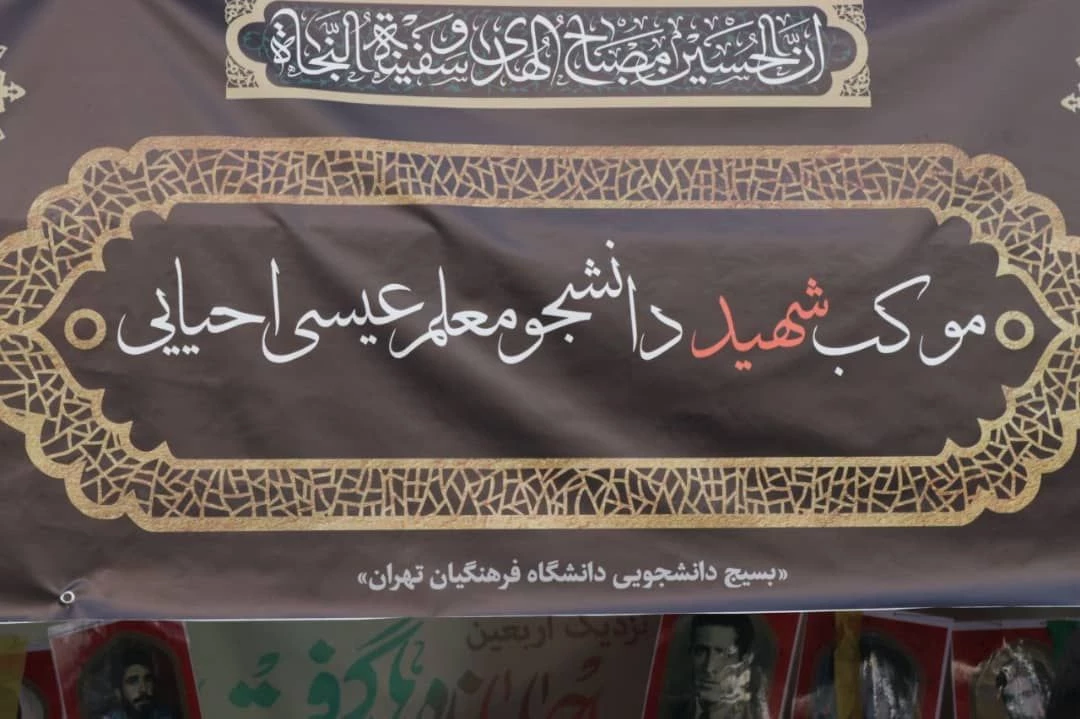 ان الحسین مصباح الهدی و سفینة النجاة
موکب شهید دانشجو معلم عیسی احیایی
«بسیج دانشجویی دانشگاه فرهنگیان تهران»
نزدیک اربعین